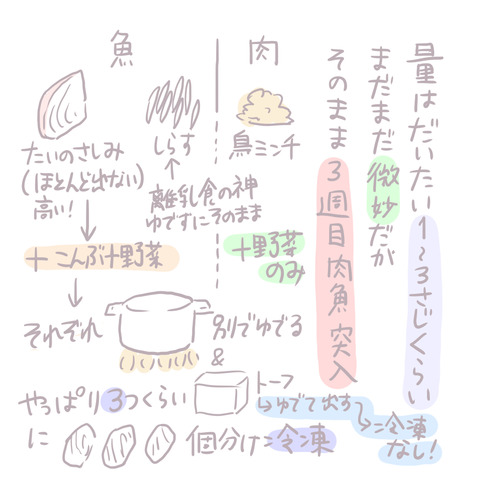 量はだいたい1〜3さじくらい
まだまだ微妙だが
そのまま3週目肉魚突入
肉
鳥ミンチ
+野菜
のみ
魚
しらす
離乳食の神
ゆでずにそのまま
たいのさしみ
(ほとんど出ない)
高い!
+こんぶ+野菜
それぞれ
別でゆでる
&
やっぱり3つくらい
に
個分け=冷凍
トーフ
ゆでて出す
=冷凍
なし!